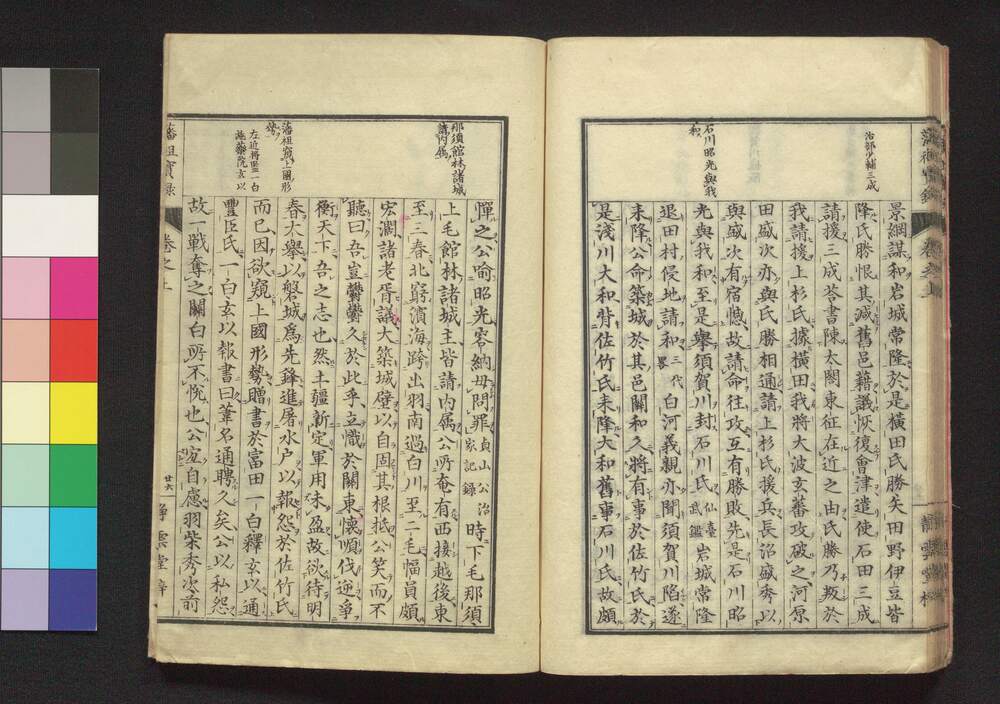 治部少輔三成
石川昭光與我
和
景綱謀和岩城常隆於是橫田氏勝矢田野伊豆皆
降氏勝恨其減舊邑藉議恢復會津遣使石田三成
請援三成荅書陳太閤東征在近之由氏勝乃叛於
我請援上杉氏據橫田我將大波玄蕃攻破之河原
田盛次亦與氏勝相通請上杉氏援兵長沼盛秀以
與盛次有宿憾故請命往攻互有勝敗先是石川昭
光與我和至是舉須賀川封石川氏仙臺武鑑岩城常隆
退田村侵地請和三代畧白河義親亦聞須賀川陷遂
來降公命築城於其邑關和久將有事於佐竹氏於
是淺川大和背佐竹氏來降大和舊事石川氏故頗
那須館林諸城
請內屬
藩祖窺上國形
勢
左近將監一白
施藥院玄以
憚之公喻昭光寧納毋問罪貞山公治家記錄時下毛那須
上毛館林諸城主皆請內属公所奄有西接越後東
至三春北窮濱海跨出羽南過白川至二毛幅員頗
宏濶諸老胥議大築城壁以自固其根抵公笑而不
聽曰吾豈鬱鬱久於此乎立幟於關東懷順伐逆爭
衡天下吾之志也然土疆新定軍用未盈故欲待明
春大舉以磐城爲先鋒進屠水户以報怨於佐竹氏
而已因欲窺上國形勢贈書於富田一白釋玄以通
豐臣氏一白玄以報書曰葦名通聘久矣公以私怨
故一戰奪之關白所不悅也公宜自慮羽柴秀次前
藩祖實錄
卷之上
廿六
靜雲堂梓